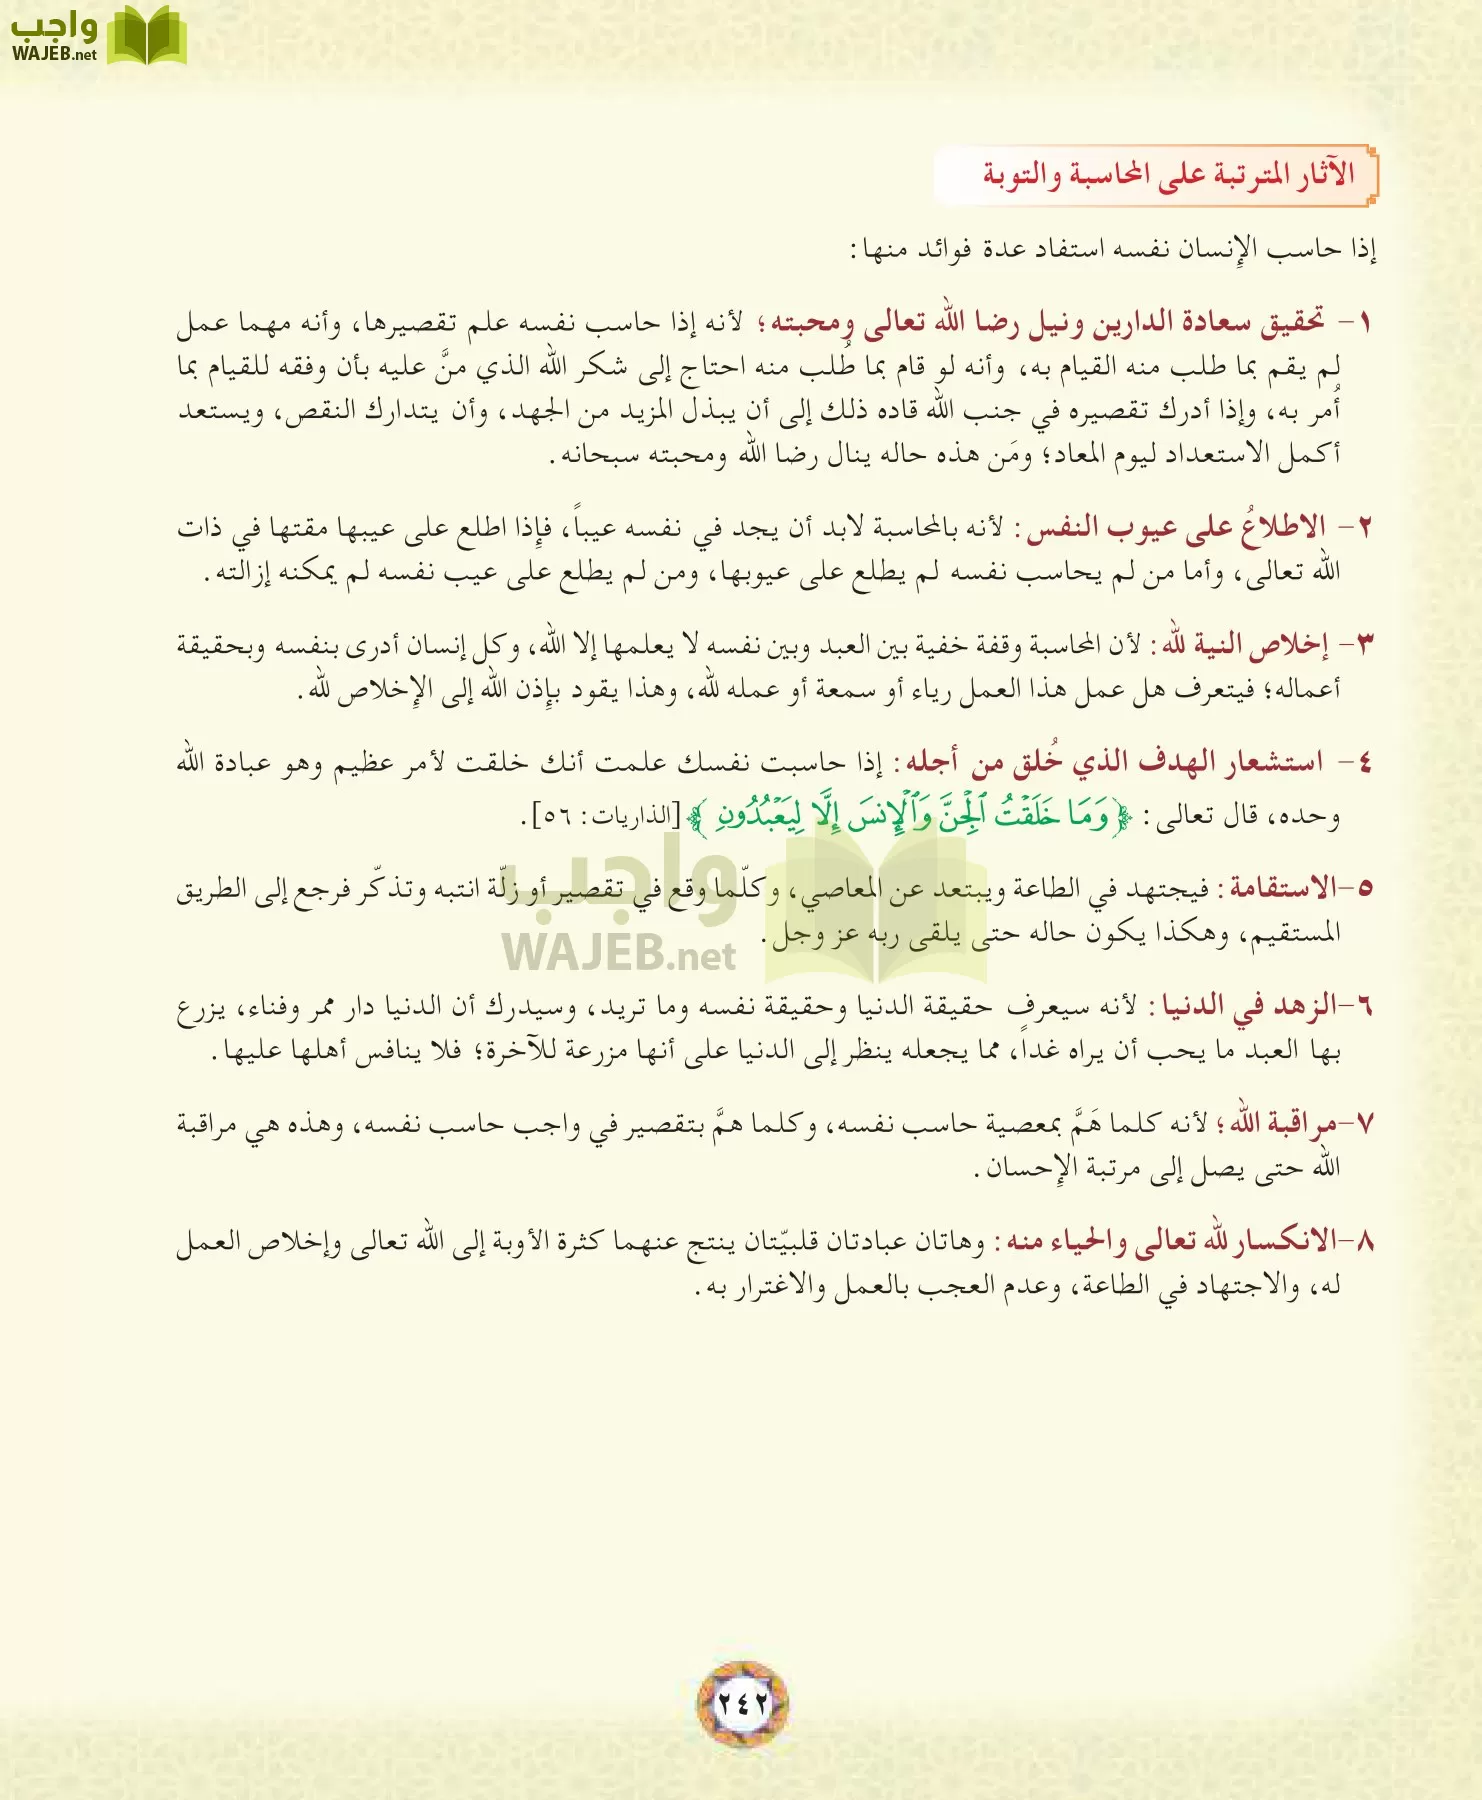 واجب
WAJEB.net
الآثار المترتبة على المحاسبة والتوبة
إذا حاسب الإنسان نفسه استفاد عدة فوائد منها:
١- تحقيق سعادة الدارين ونيل رضا الله تعالى ومحبته؛ لأنه إذا حاسب نفسه علم تقصيرها، وأنه مهما عمل
لم يقم بما طلب منه القيام به، وأنه لو قام بما طُلب منه احتاج إلى شكر الله الذي منَّ عليه بأن وفقه للقيام بما
أُمر به، وإذا أدرك تقصيره في جنب الله قاده ذلك إلى أن يبذل المزيد من الجهد، وأن يتدارك النقص، ويستعد
أكمل الاستعداد ليوم المعاد؛ ومَن هذه حاله ينال رضا الله ومحبته سبحانه.
٢- الاطلاعُ على عيوب النفس: لأنه بالمحاسبة لابد أن يجد في نفسه عيباً، فإذا اطلع على عيبها مقتها في ذات
الله تعالى، وأما من لم يحاسب نفسه لم يطلع على عيوبها، ومن لم يطلع على عيب نفسه لم يمكنه إزالته.
٣- إخلاص النية لله: لأن المحاسبة وقفة خفية بين العبد وبين نفسه لا يعلمها إلا الله، وكل إنسان أدرى بنفسه وبحقيقة
أعماله؛ فيتعرف هل عمل هذا العمل رياء أو سمعة أو عمله لله، وهذا يقود بإذن الله إلى الإخلاص لله.
٤- استشعار الهدف الذي خُلق من أجله: إذا حاسبت نفسك علمت أنك خلقت لأمر عظيم وهو عبادة الله
وحده، قال تعالى: ﴿وَمَا خَلَقۡتُ ٱلۡجِنَّ وَٱلۡإِنسَ إِلَّا لِيَعۡبُدُونِ﴾ [الذاريات: ٥٦].
٥-الاستقامة: فيجتهد في الطاعة ويبتعد عن المعاصي، وكلّما وقع في تقصير أو زلّة انتبه وتذكّر فرجع إلى الطريق
المستقيم، وهكذا يكون حاله حتى يلقى ربه عز وجل.
واجب
WAJEB.net
٦-الزهد في الدنيا: لأنه سيعرف حقيقة الدنيا وحقيقة نفسه وما تريد، وسيدرك أن الدنيا دار ممر وفناء، يزرع
بها العبد ما يحب أن يراه غداً، مما يجعله ينظر إلى الدنيا على أنها مزرعة للآخرة؛ فلا ينافس أهلها عليها.
٧-مراقبة الله؛ لأنه كلما هَمَّ بمعصية حاسب نفسه، وكلما همَّ بتقصير في واجب حاسب نفسه، وهذه هي مراقبة
الله حتى يصل إلى مرتبة الإحسان.
٨-الانكسار لله تعالى والحياء منه: وهاتان عبادتان قلبيّتان ينتج عنهما كثرة الأوبة إلى الله تعالى وإخلاص العمل
له، والاجتهاد في الطاعة، وعدم العجب بالعمل والاغترار به.
٢٤٢